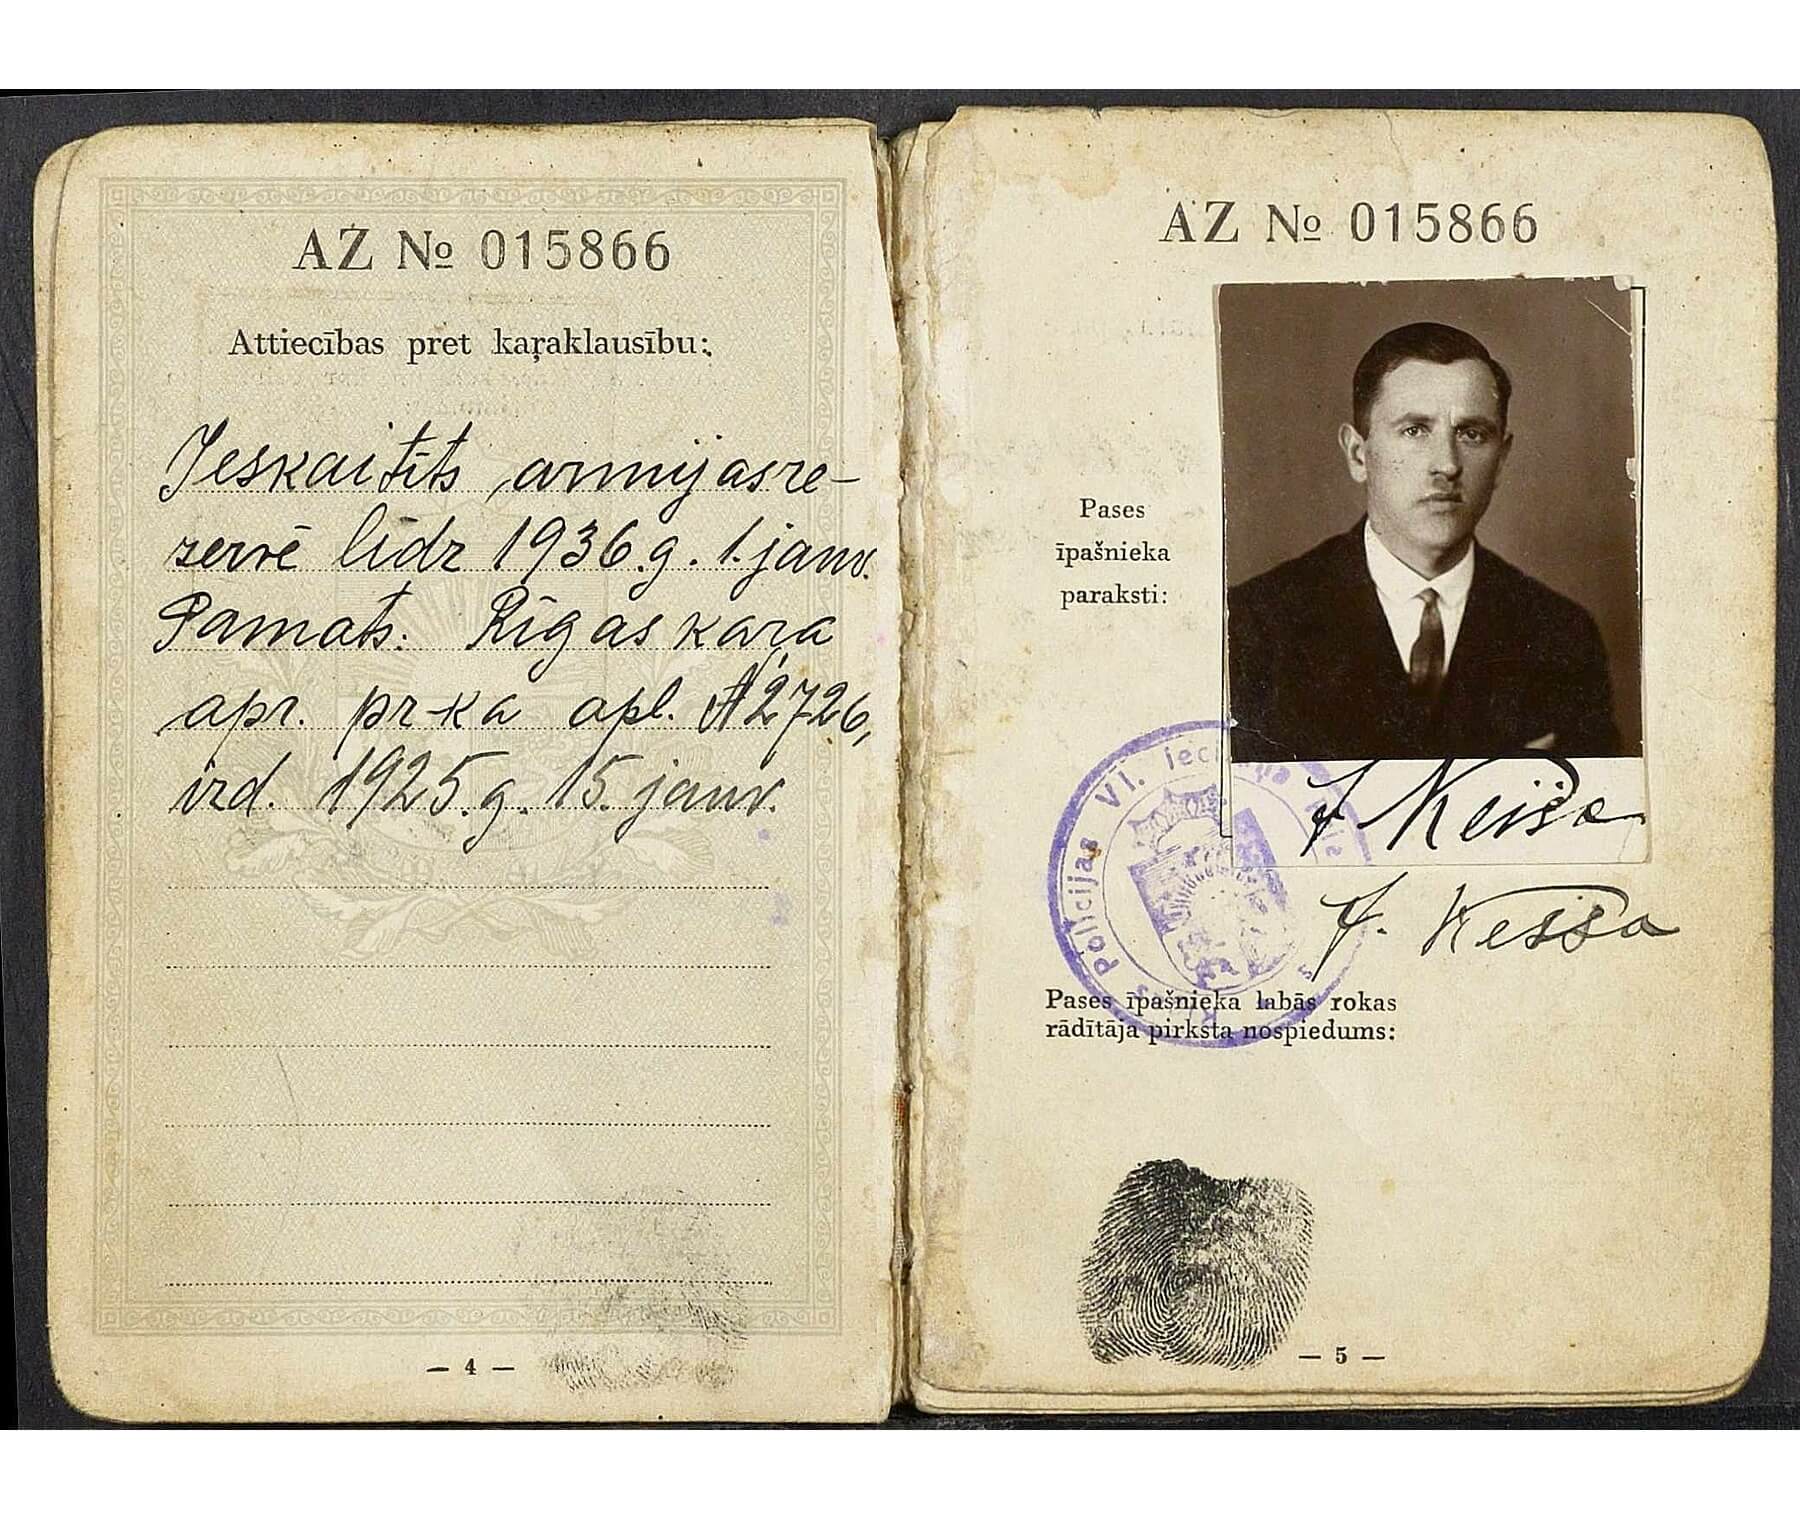 AZ № 015866
Attiecības pret kaŗaklausību:
Ieskaitīts armijas re-
zervē līdz 1936.g. 1. janv.
Pamats: Rīgas kara
apr. pr-ka apl. № 2726,
izd. 1925.g. 15. janv.
— 4 —
AZ № 015866
Pases
īpašnieka
paraksti:
Policijas VI. iecirkņa
Pases īpašnieka labās rokas
rādītāja pirksta nospiedums:
— 5 —